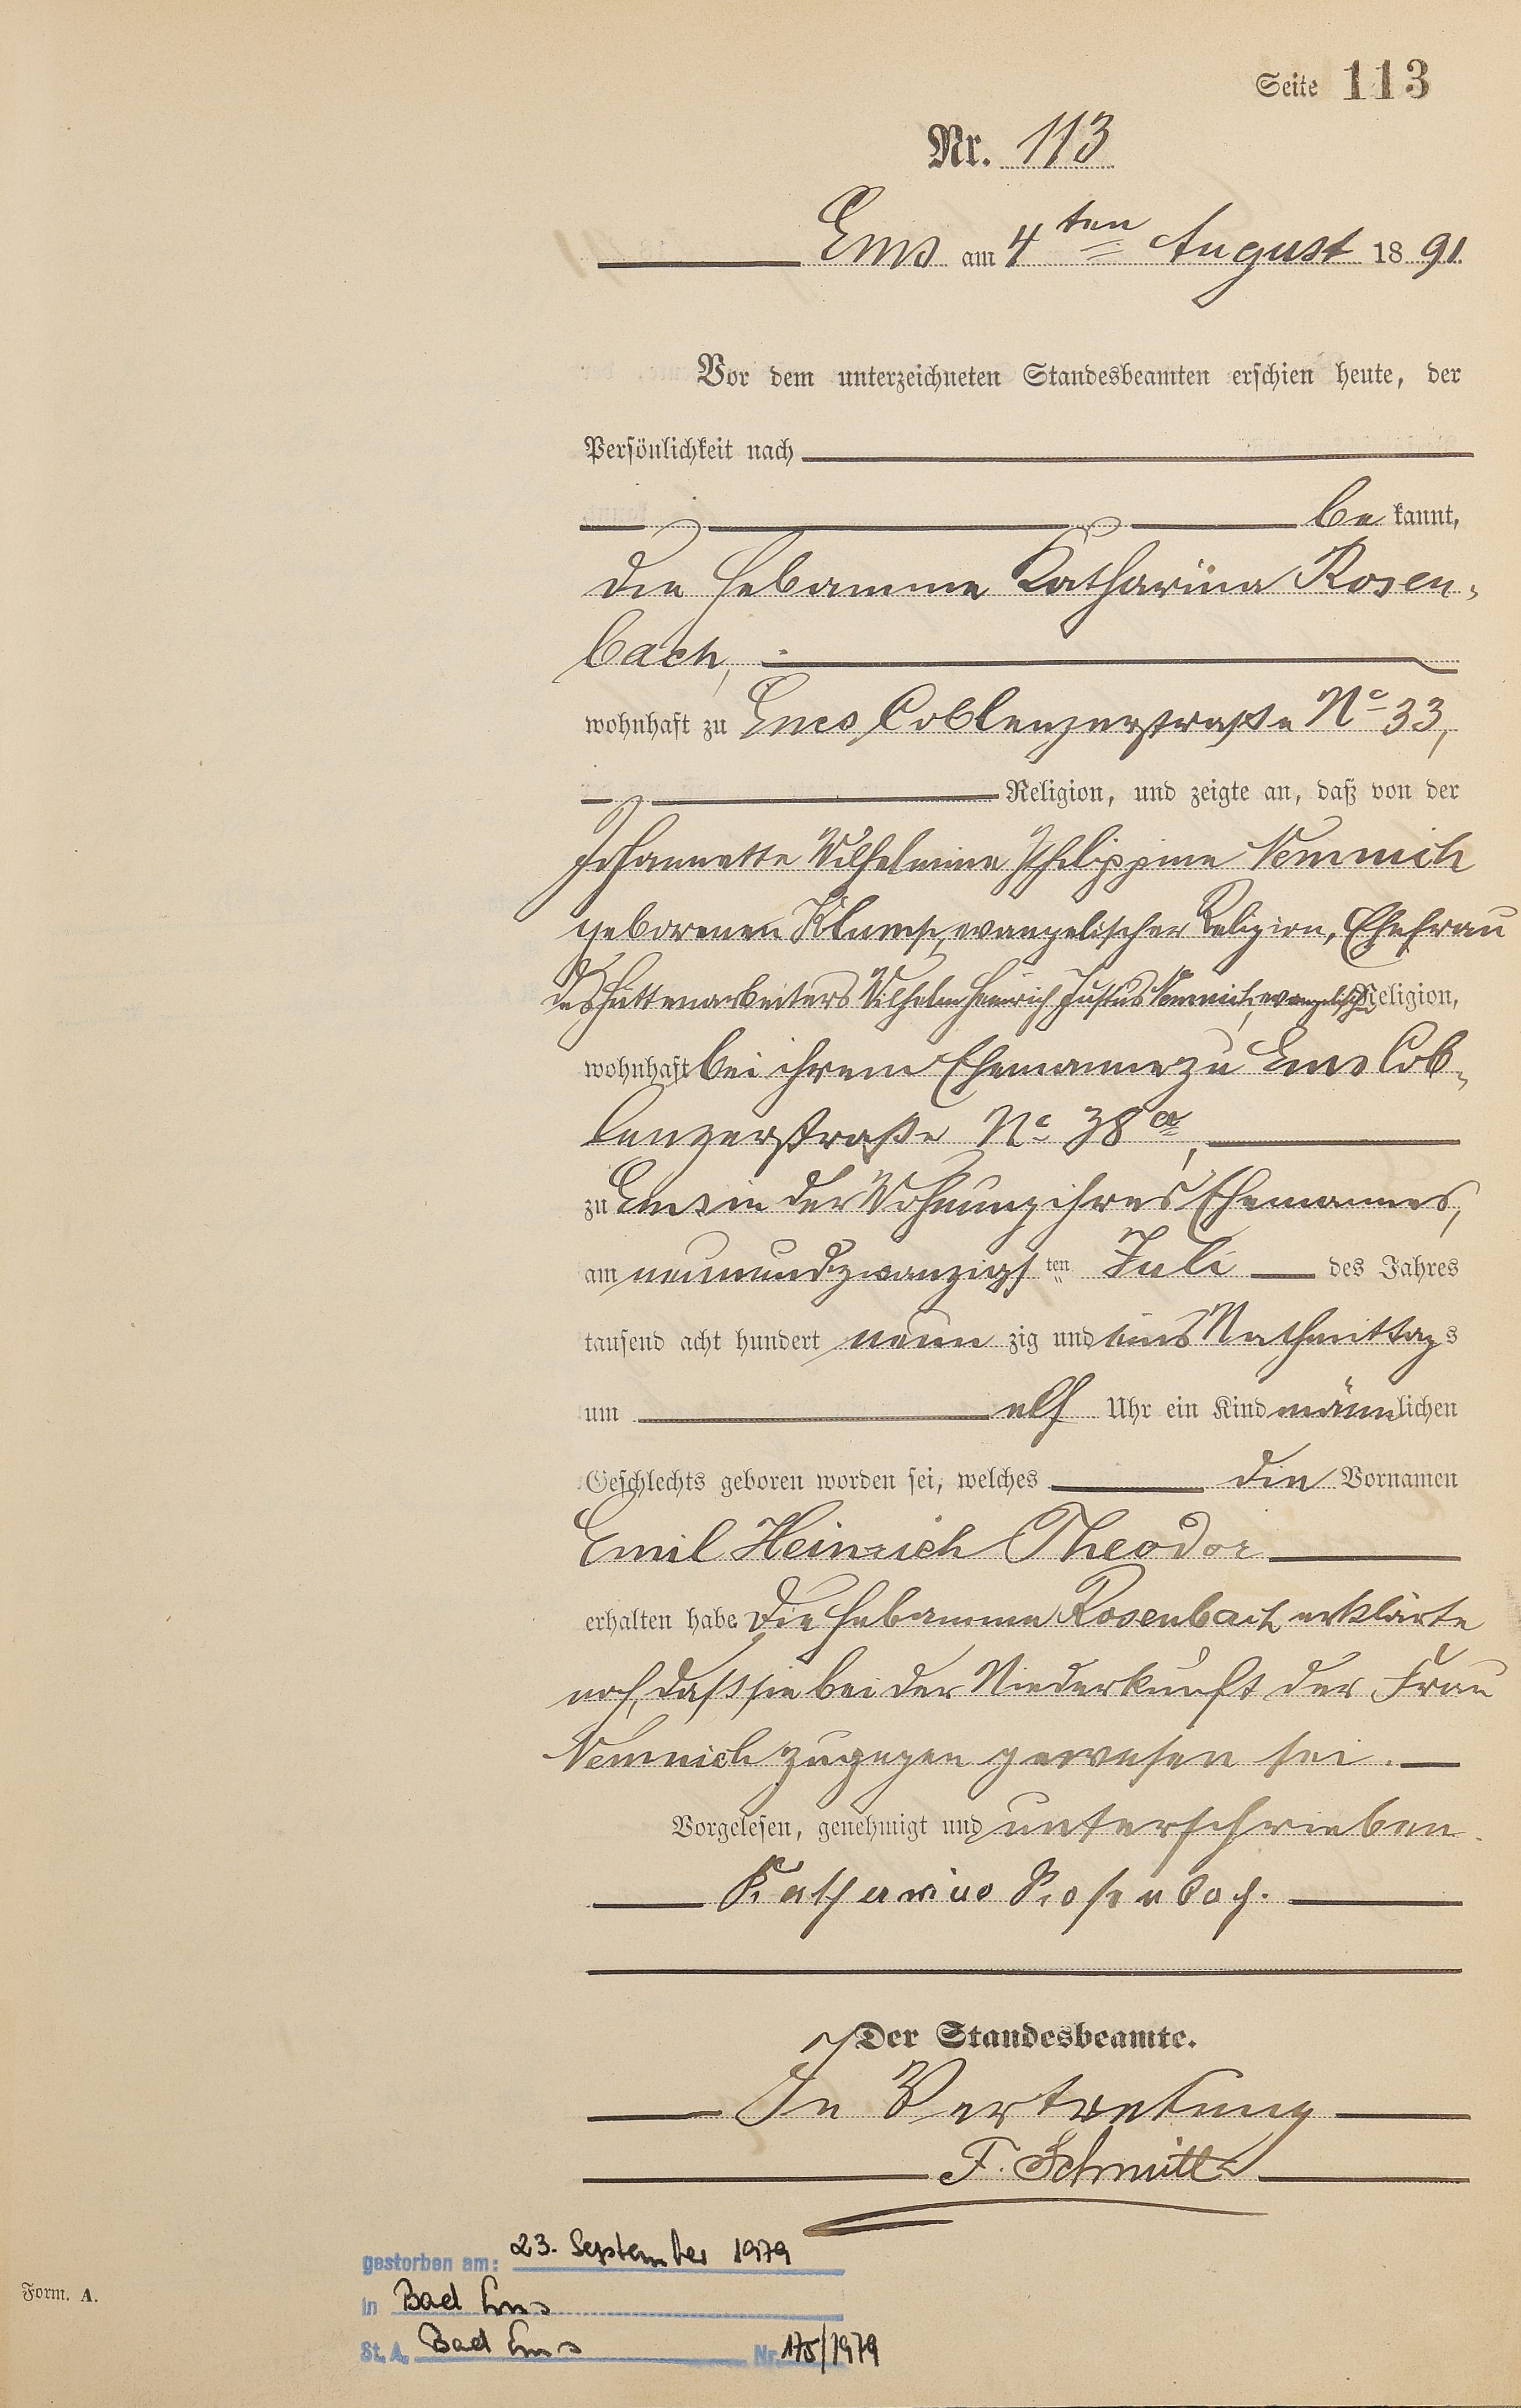 Seite 113
Nr. 113
Ems am 4ten August 1891.
Vor dem unterzeichneten Standesbeamten erschien heute, der
Persönlichkeit nach
be kannt,
die Hebamme Katharina Rosen-
bach,
wohnhaft zu Ems, Coblenzerstraße No 33,
Religion, und zeigte an, daß von der
Johannette Wilhelmine Philippine Nemnich
geborenen Klump, evangelischer Religion, Ehefrau
des Hüttenarbeiters Wilhelm Heinrich Justus Nemnich, evangelischer Religion,
wohnhaft bei ihrem Ehemanne zu Ems Cob-
lenzerstraße No 38a,
zu Ems in der Wohnung ihres Ehemannes,
am neunundzwanzigsten Juli des Jahres
tausend acht hundert neunzig und eins Nachmittags
um elf Uhr ein Kind männlichen
Geschlechts geboren worden sei, welches die Vornamen
Emil Heinrich Theodor
erhalten habe. Die Hebamme Rosenbach erklärte
noch, daß sie bei der Niederkunft der Frau
Nemnich zugegen gewesen sei.
Vorgelesen, genehmigt und unterschrieben.
Katharina Rosenbach.
Der Standesbeamte.
In Vertretung
F. Schmitt
gestorben am: 23. September 1979
in Bad Ems
St. A. Bad Ems Nr. 175/1979
Form. A.